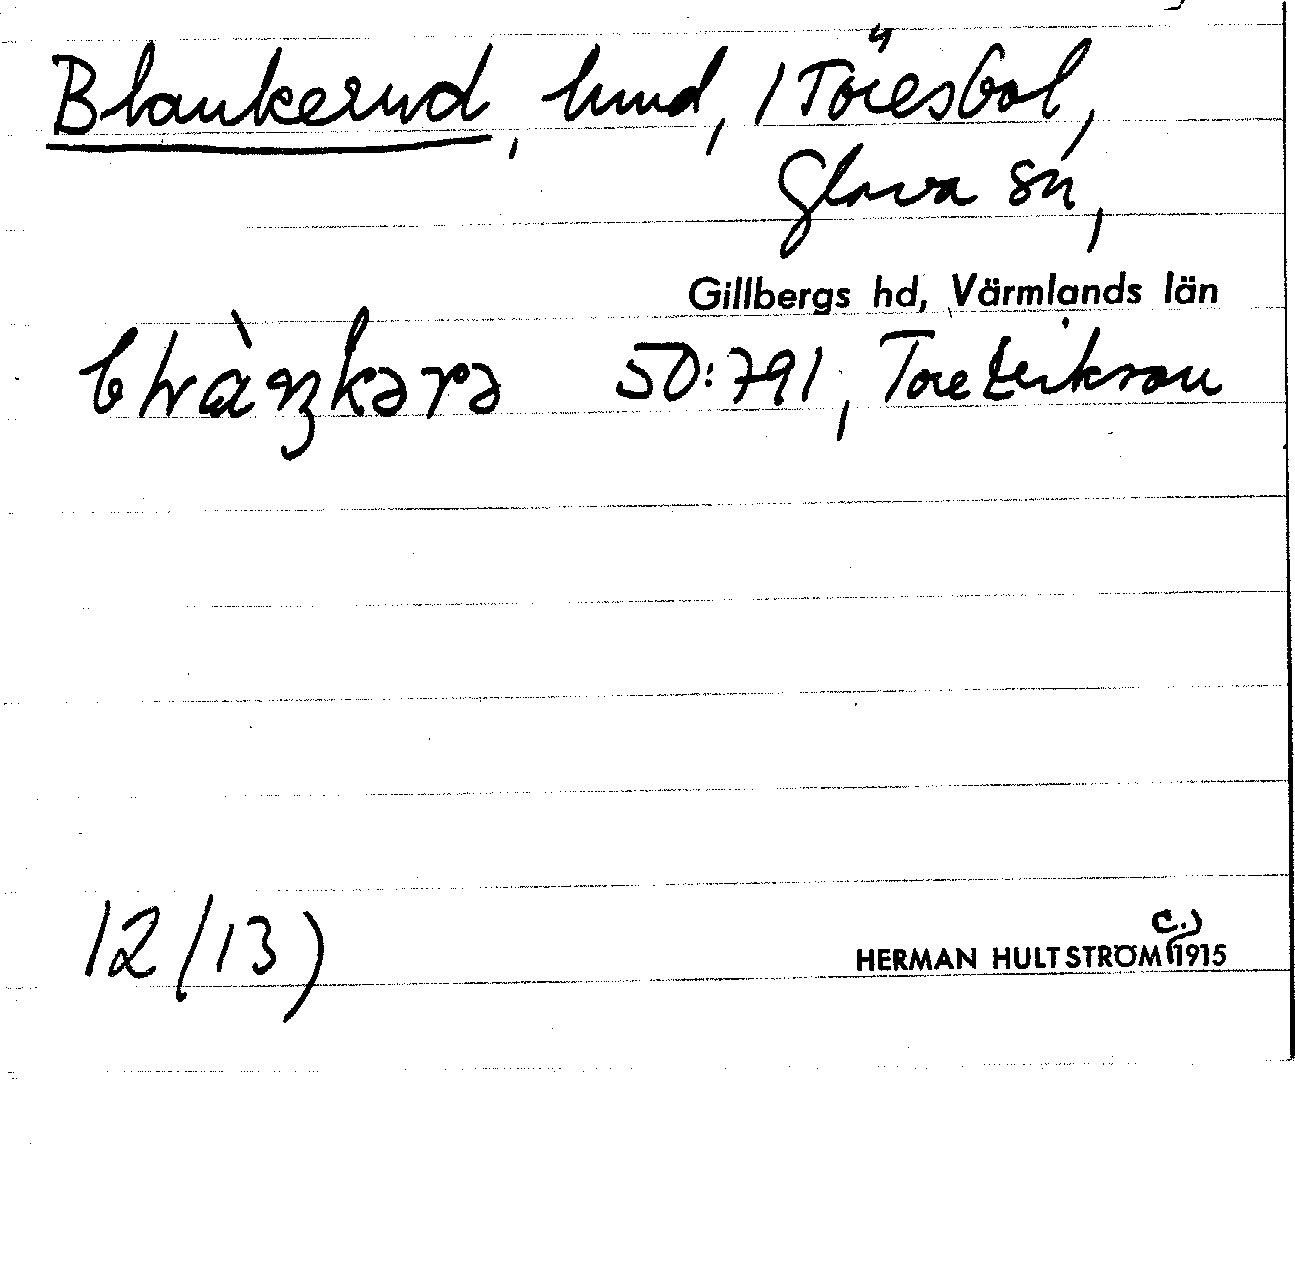 Blankerud, lund, / Töresbol,
Glava sn,
Gillbergs hd, Värmlands län
50:791, Tore Erikson
12/13)
HERMAN HULTSTRÖM (c.) 1915